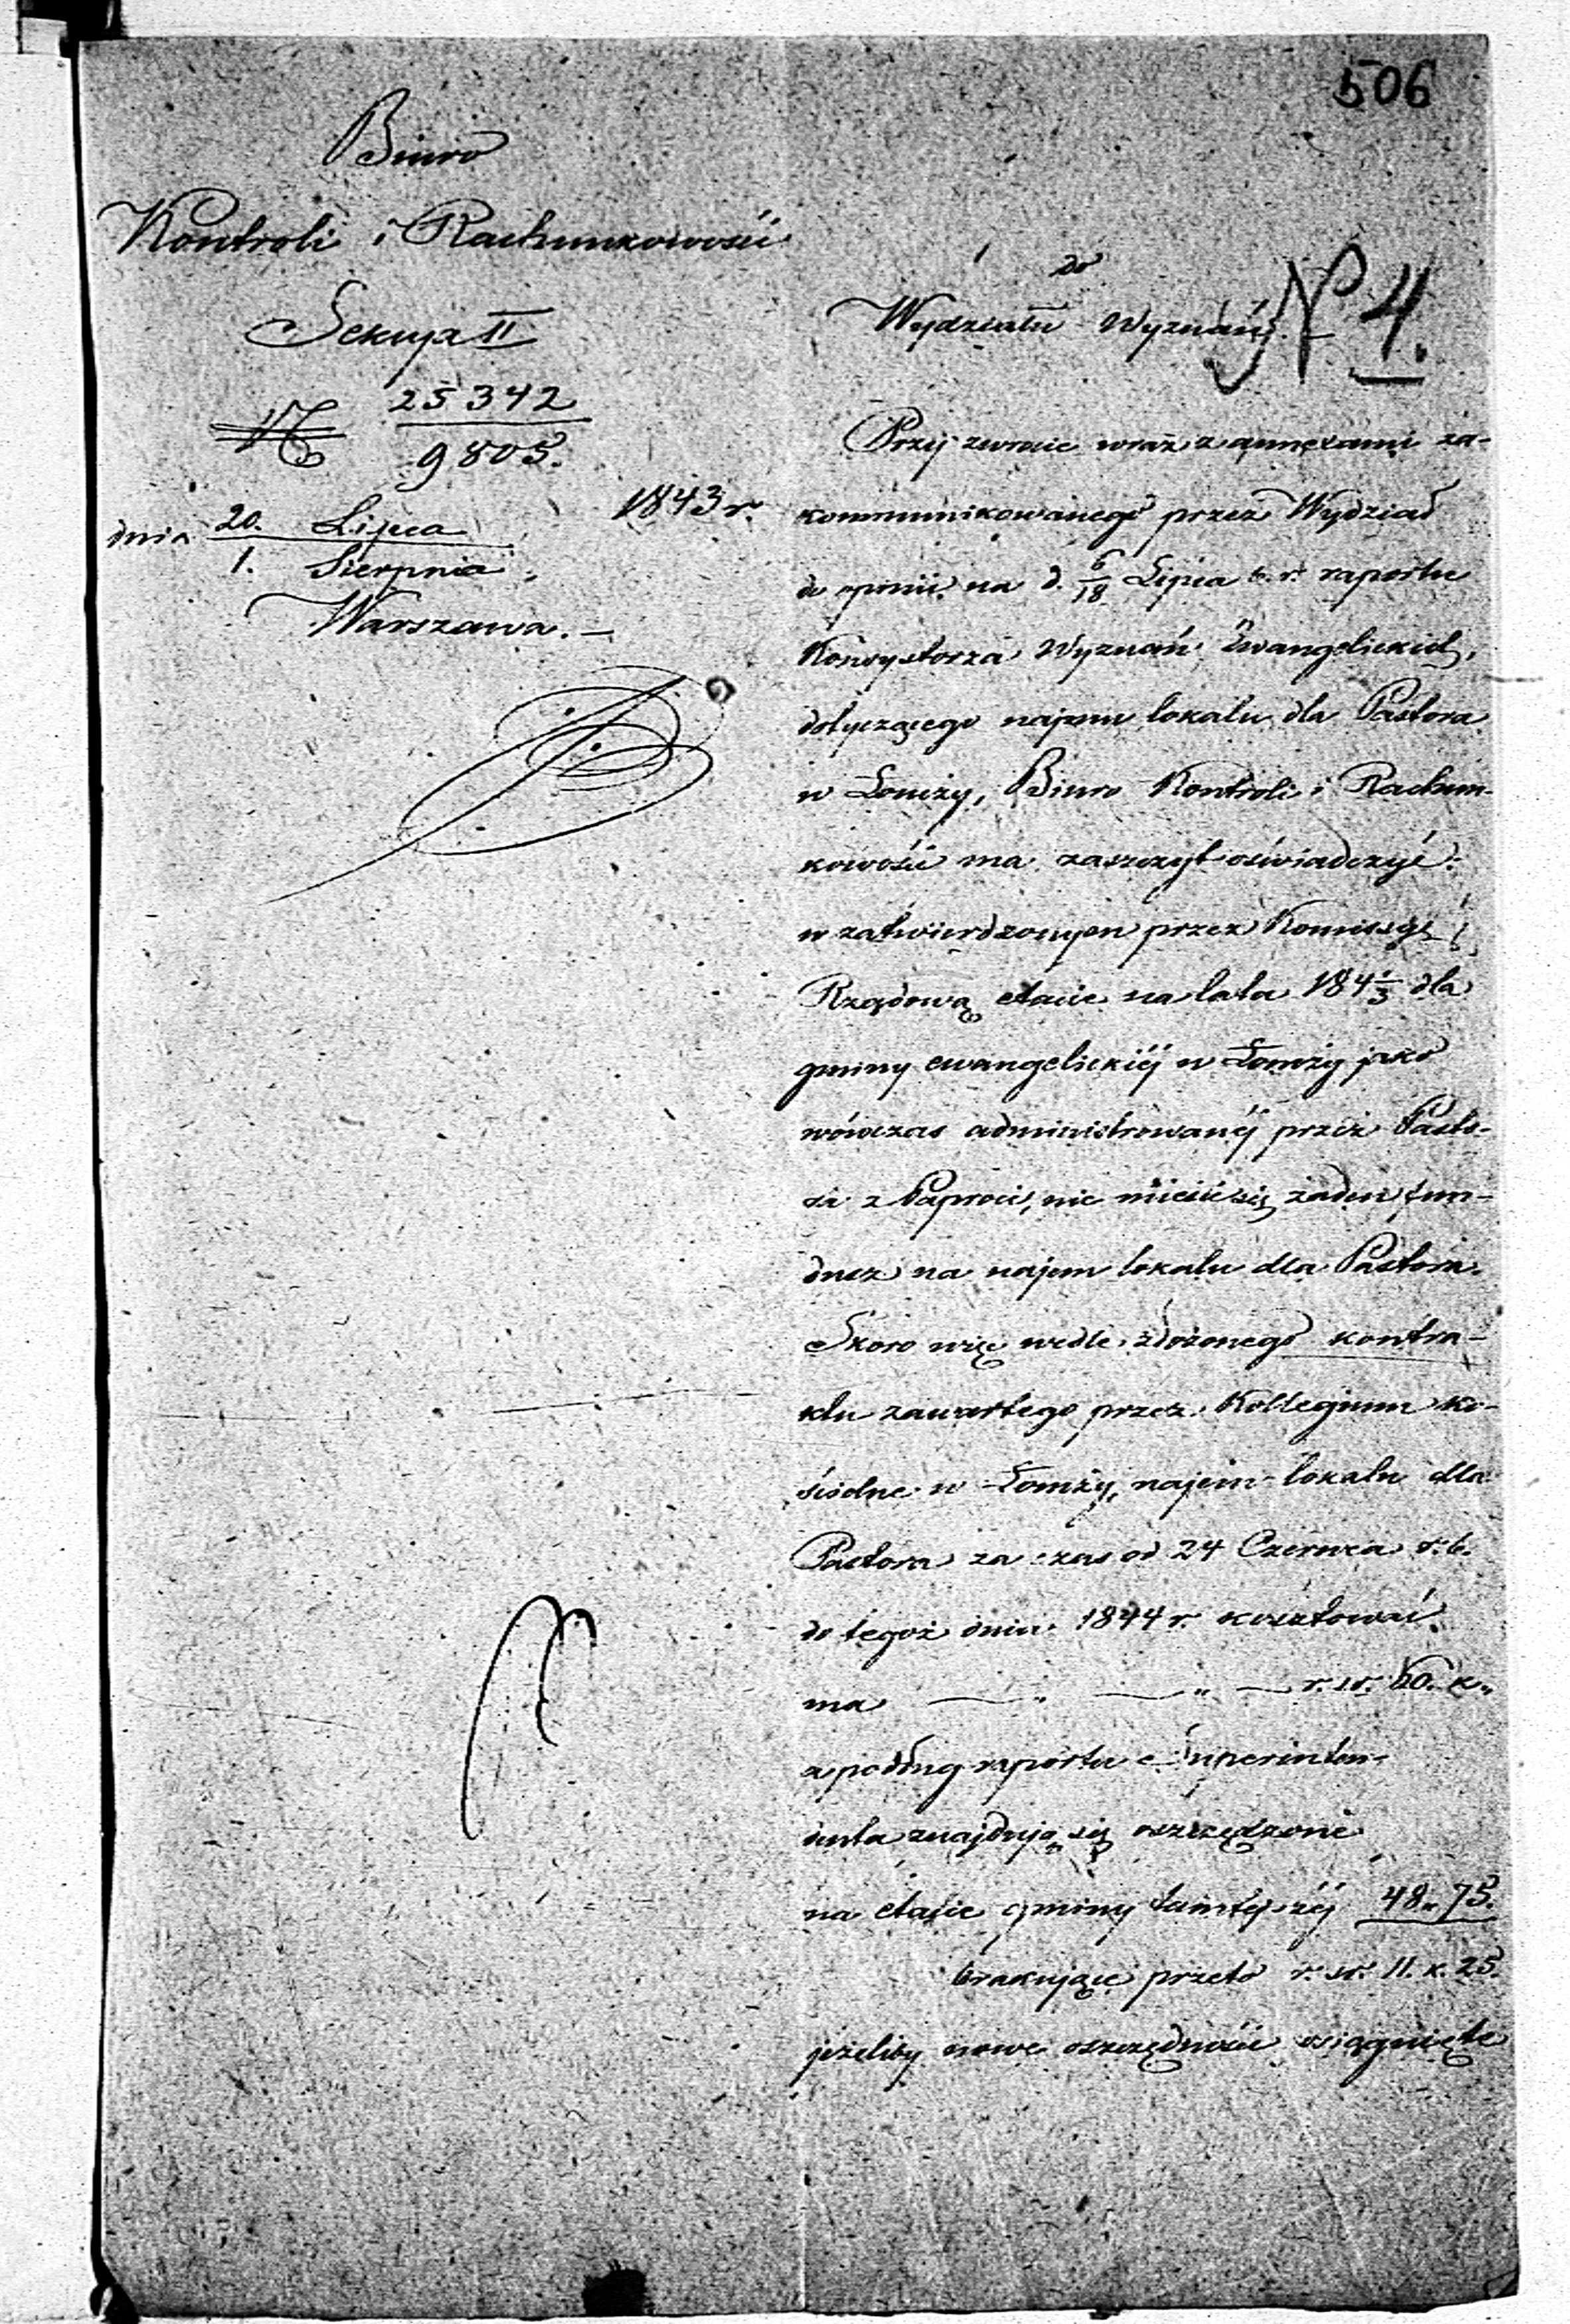 506
Biuro
Kontroli i Rachunkowości
Sekcya II
№ 25342
9805.
dnia 20. Lipca 1843 r.
1. Sierpnia
Warszawa. —
do
Wydziału Wyznań.
N 4.
Przy zwrocie wraz z annexami za-
kommunikowanego przez Wydział
do opinii na d. 6/18 Lipca b. r. raportu
Konsystorza Wyznań Ewangelickich,
dotyczącego najmu lokalu dla Pastora
w Łomży, Biuro Kontroli i Rachun-
kowości ma zaszczyt oświadczyć:
w zatwierdzonym przez Kommissyę
Rządową etacie na lata 184 1/3 dla
gminy ewangelickiéj w Łomży jako
wówczas administrowanéj przez Pasto-
ra z Paproci, nie mieści się żaden fun-
dusz na najem lokalu dla Pastora.
Skoro więc wedle złożonego kontra-
ktu zawartego przez Kollegium ko-
ścielne w Łomży, najem lokalu dla
Pastora za czas od 24 Czerwca r. b.
do tegoż dnia 1844 r. kosztować
ma — „ — „ — r. sr. 60. k „
a podług raportu Superinten-
denta znajdują się oszczędzone
na etacie gminy tamtejszéj 48 „ 75.
brakujące przeto r. sr. 11. k. 25.
jeżeliby nowe oszczędności osiągnięte